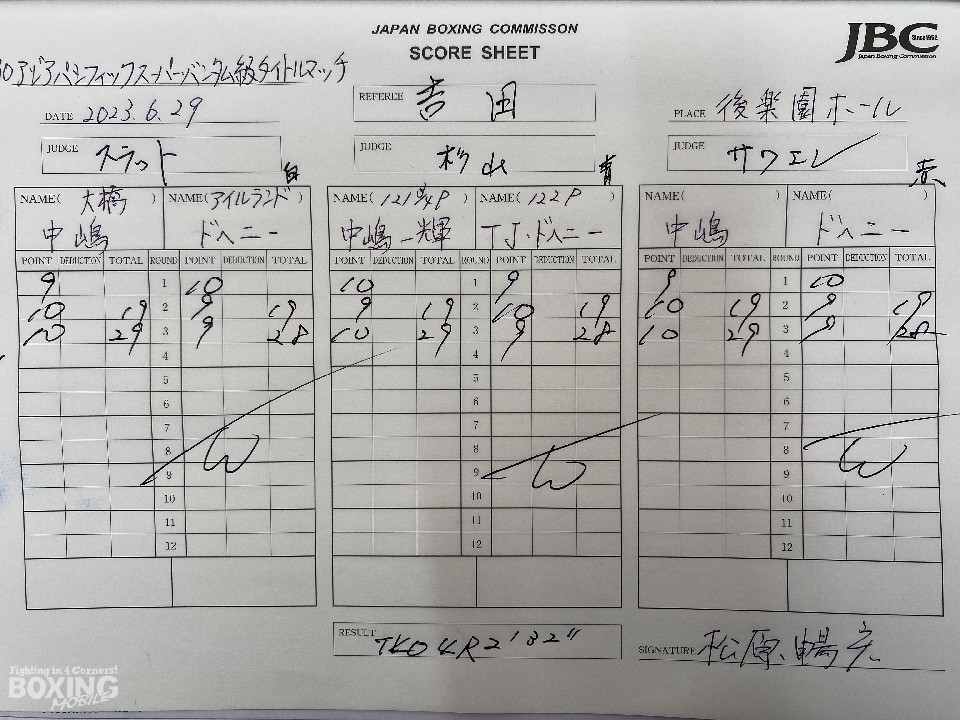 JAPAN BOXING COMMISSON
SCORE SHEET
JBC Since1952
Japan Boxing Commission
アジアパシフィックスーパーバンタム級タイトルマッチ
DATE 2023.6.29
REFEREE 吉田
PLACE 後楽園ホール
JUDGE スラット 白
JUDGE 青
JUDGE サワエレ 赤
NAME( 大橋 ) NAME( アイルランド ) NAME( 121 3/4P ) NAME( 122P ) NAME( ) NAME( )
中嶋 ドヘニー 中嶋一輝 TJ・ドヘニー 中嶋 ドヘニー
POINT DEDUCTION TOTAL ROUND POINT DEDUCTION TOTAL POINT DEDUCTION TOTAL ROUND POINT DEDUCTION TOTAL POINT DEDUCTION TOTAL ROUND POINT DEDUCTION TOTAL
9 1 10 10 1 9 9 1 10
10 19 2 9 19 9 19 2 10 19 10 19 2 9 19
10 29 3 9 28 10 29 3 9 28 10 29 3 9 28
4 4 4
5 5 5
6 6 6
7 7 7
8 W 8 W 8 W
9 9 9
10 10 10
11 11 11
12 12 12
RESULT TKO4R2'32"
SIGNATURE 松原、暢宏
Fighting in 4 Corners!
BOXING
MOBILE